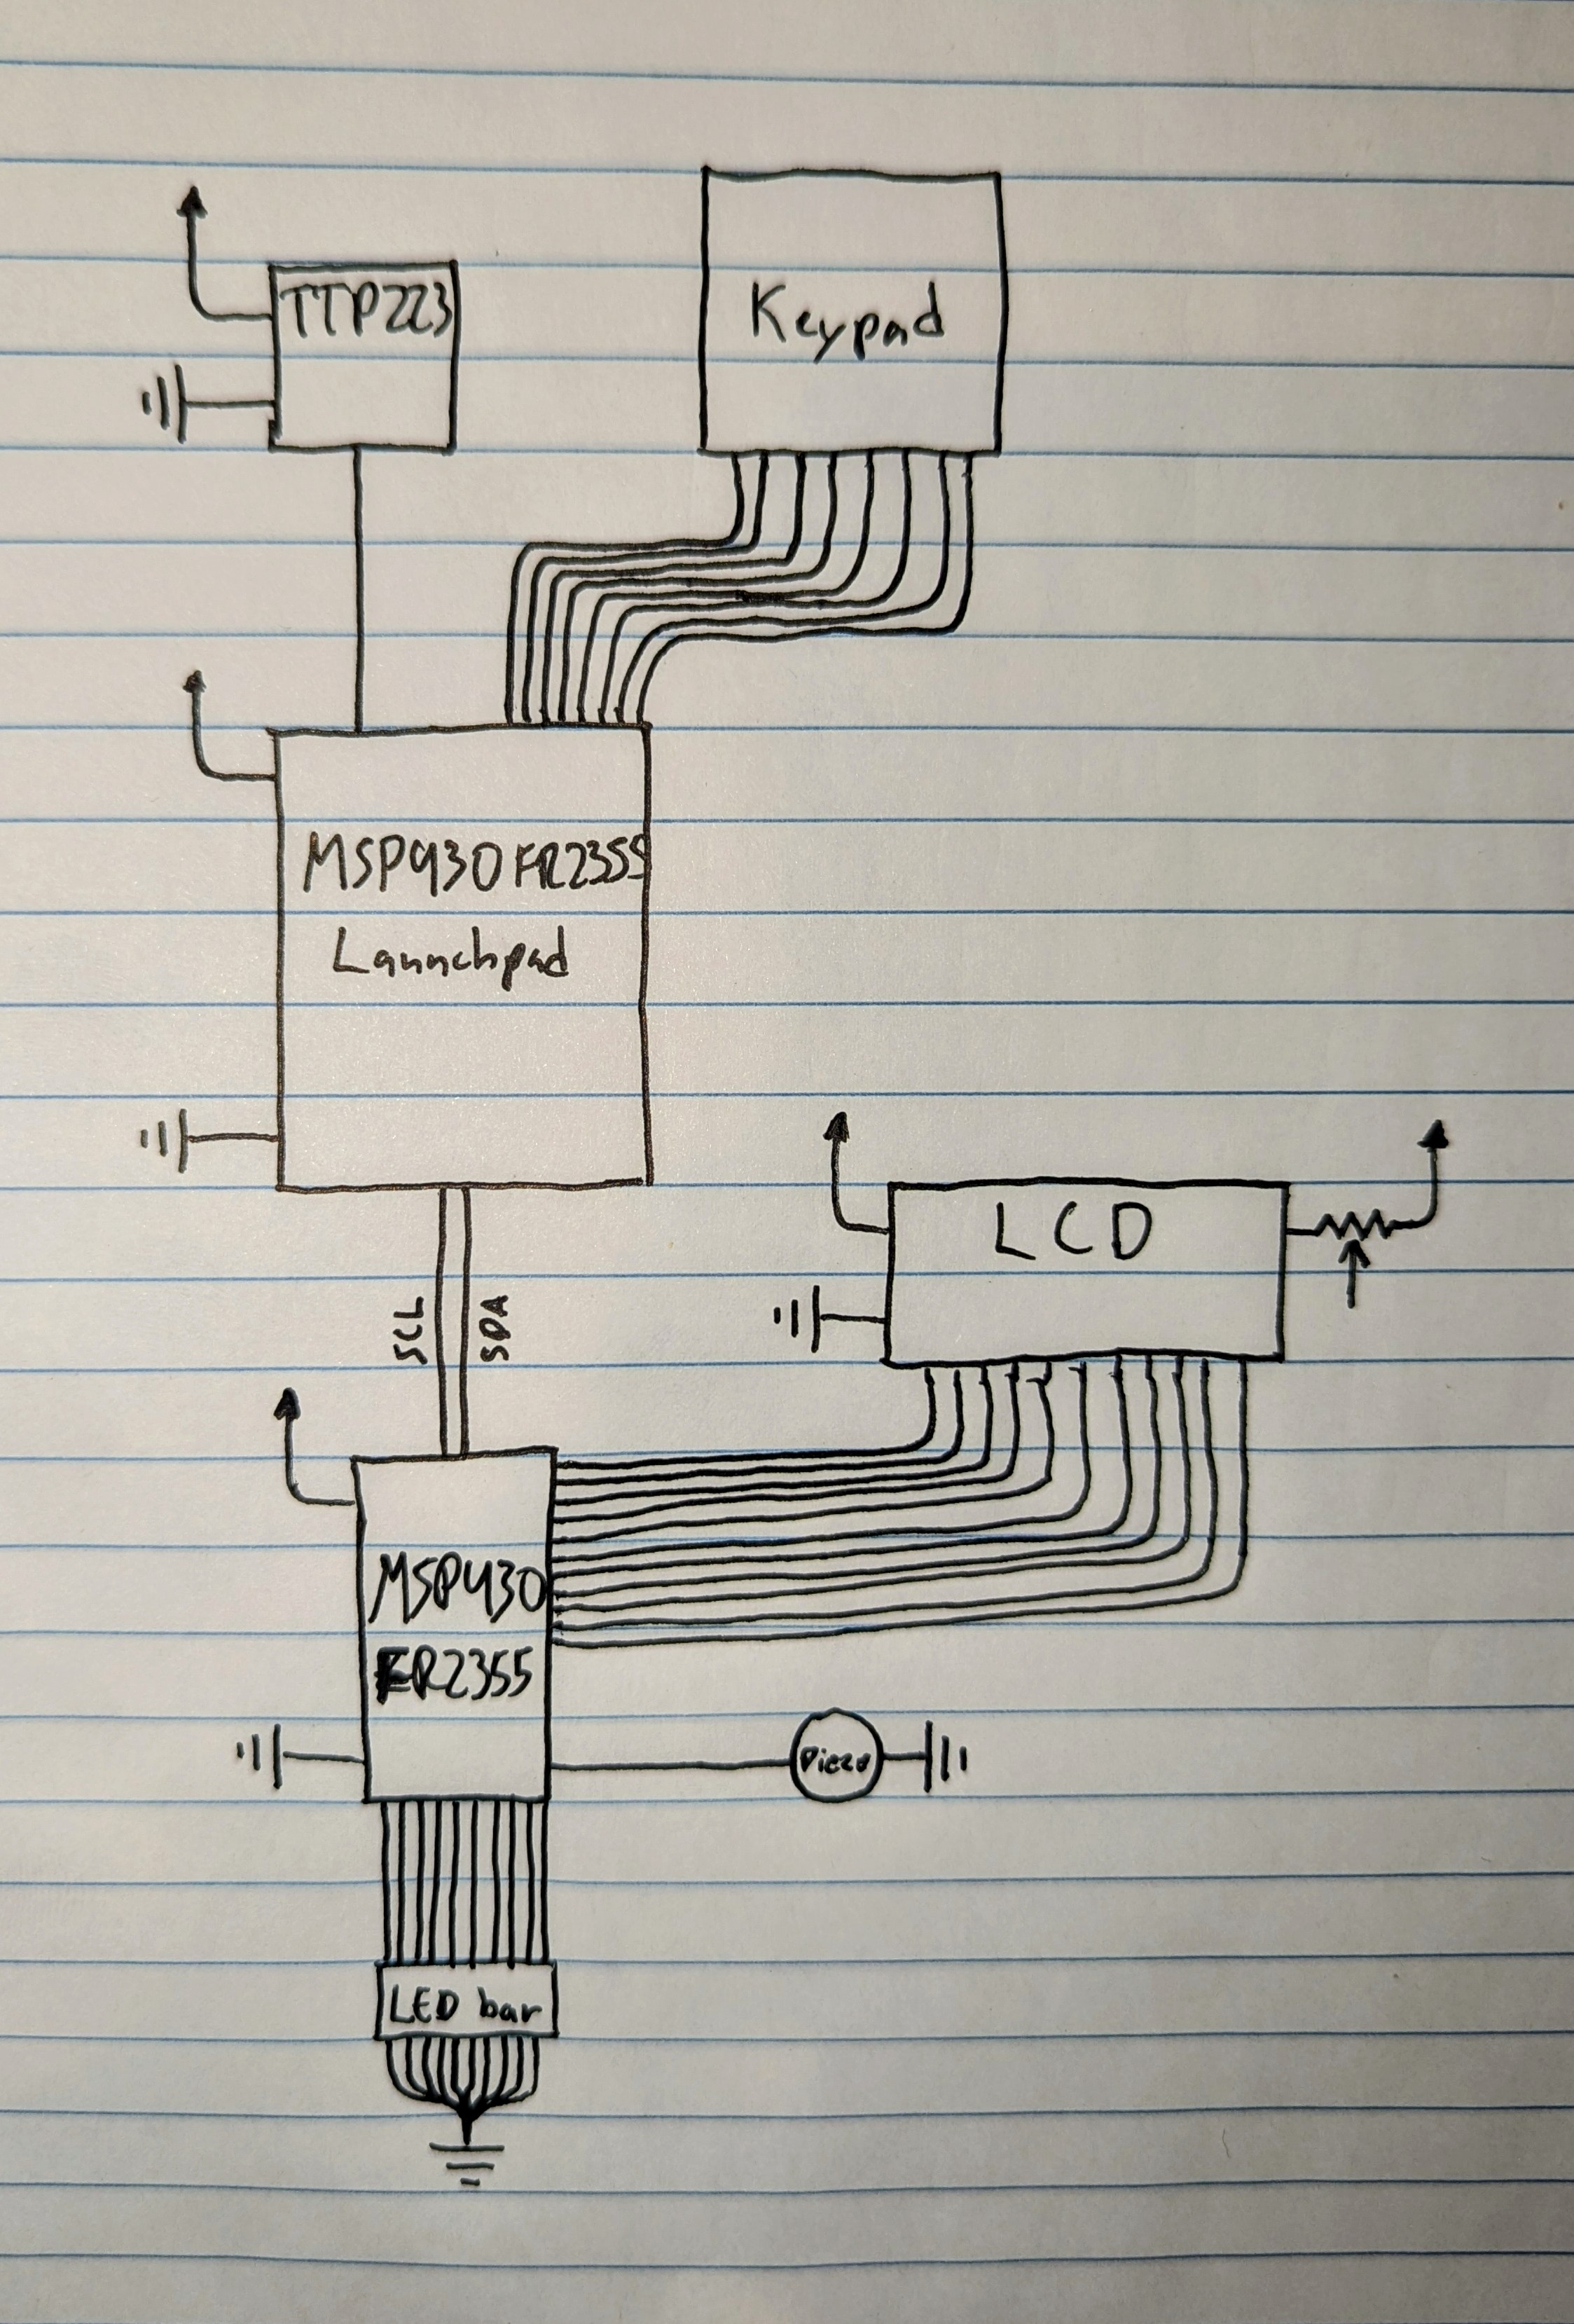 TTP223
Keypad
MSP430FR2355
Launchpad
LCD
SCL
SDA
MSP430
FR2355
Piezo
LED bar